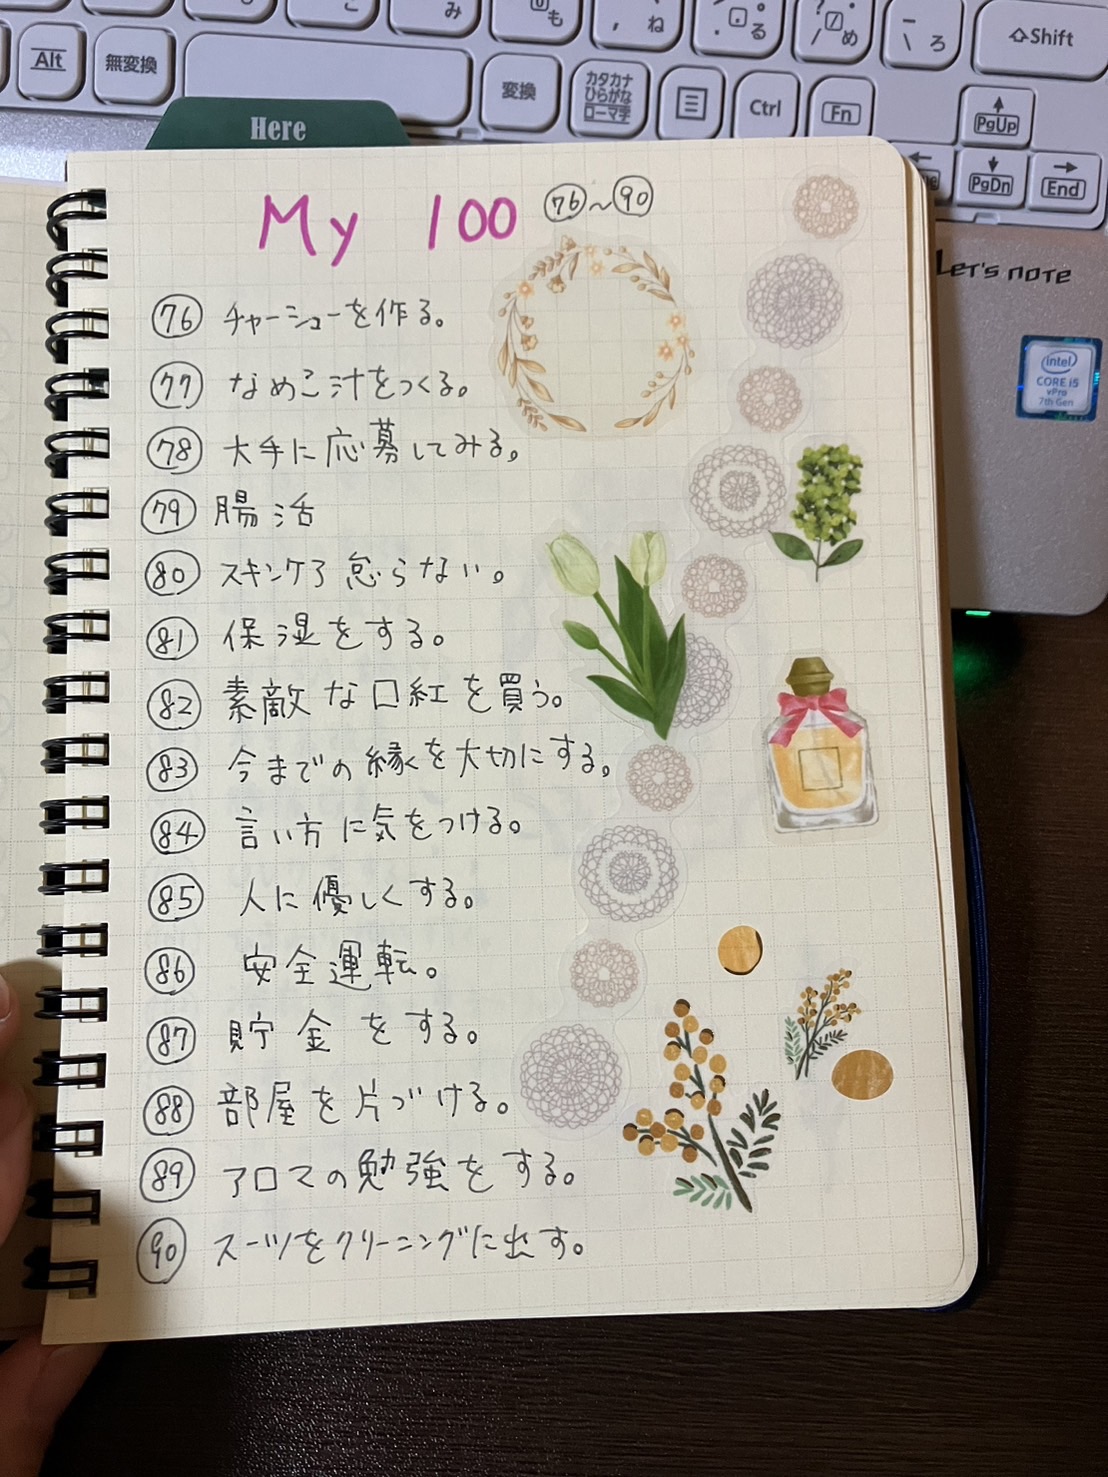 み
も
, ね
. 。る
? ・
/ め
_
\ ろ
⇧Shift
Alt
無変換
変換
カタカナ
ひらがな
ローマ字
Ctrl
Fn
PgUp
PgDn
End
Here
My 100 ㊆~㊈
Let's note
intel
CORE i5
vPro
7th Gen
76 チャーシューを作る。
77 なめこ汁をつくる。
78 大手に応募してみる。
79 腸活
80 スキンケア怠らない。
81 保湿をする。
82 素敵な口紅を買う。
83 今までの縁を大切にする。
84 言い方に気をつける。
85 人に優しくする。
86 安全運転。
87 貯金をする。
88 部屋を片づける。
89 アロマの勉強をする。
90 スーツをクリーニングに出す。